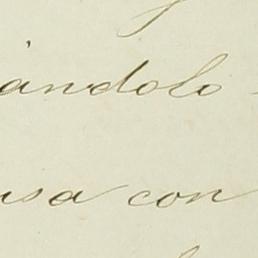 ándolo
usa con